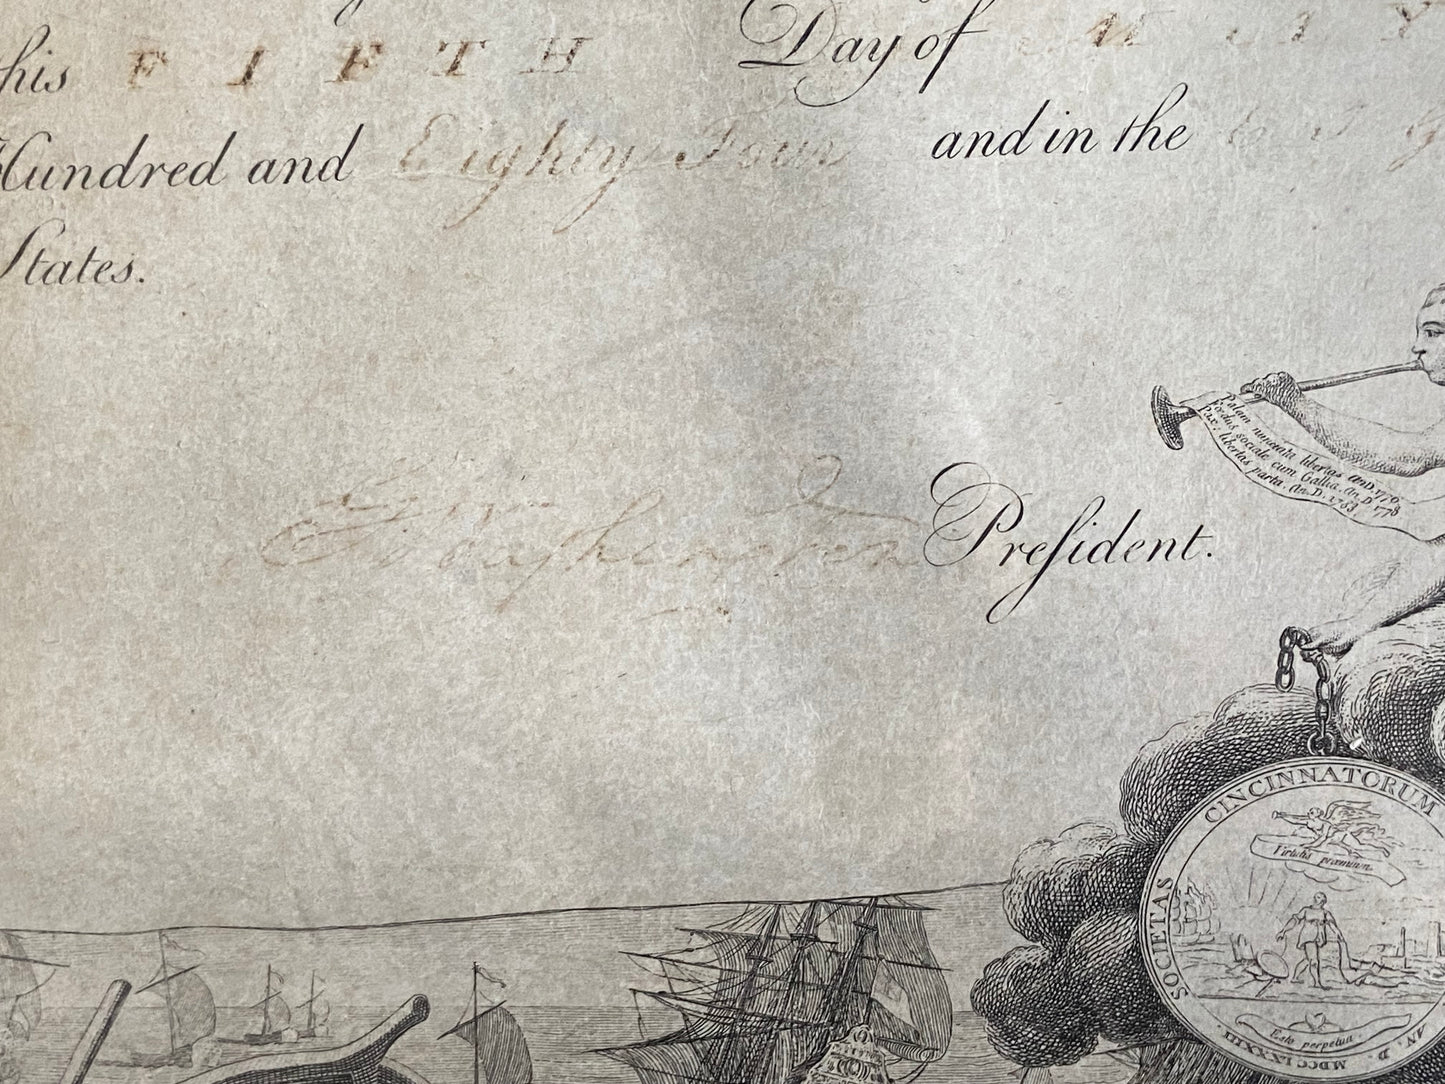 his FIFTH Day of
Hundred and Eighty Four and in the
States.
Palam nunciata libertas An.D. 1776.
Fœdus sociale cum Gallia. An. D. 1778
Pax: libertas parta. An. D. 1783.
G. Washington President.
SOCIETAS CINCINNATORUM
Virtutis præmium
Esto perpetua.
AN. D. MDCCLXXXIII.